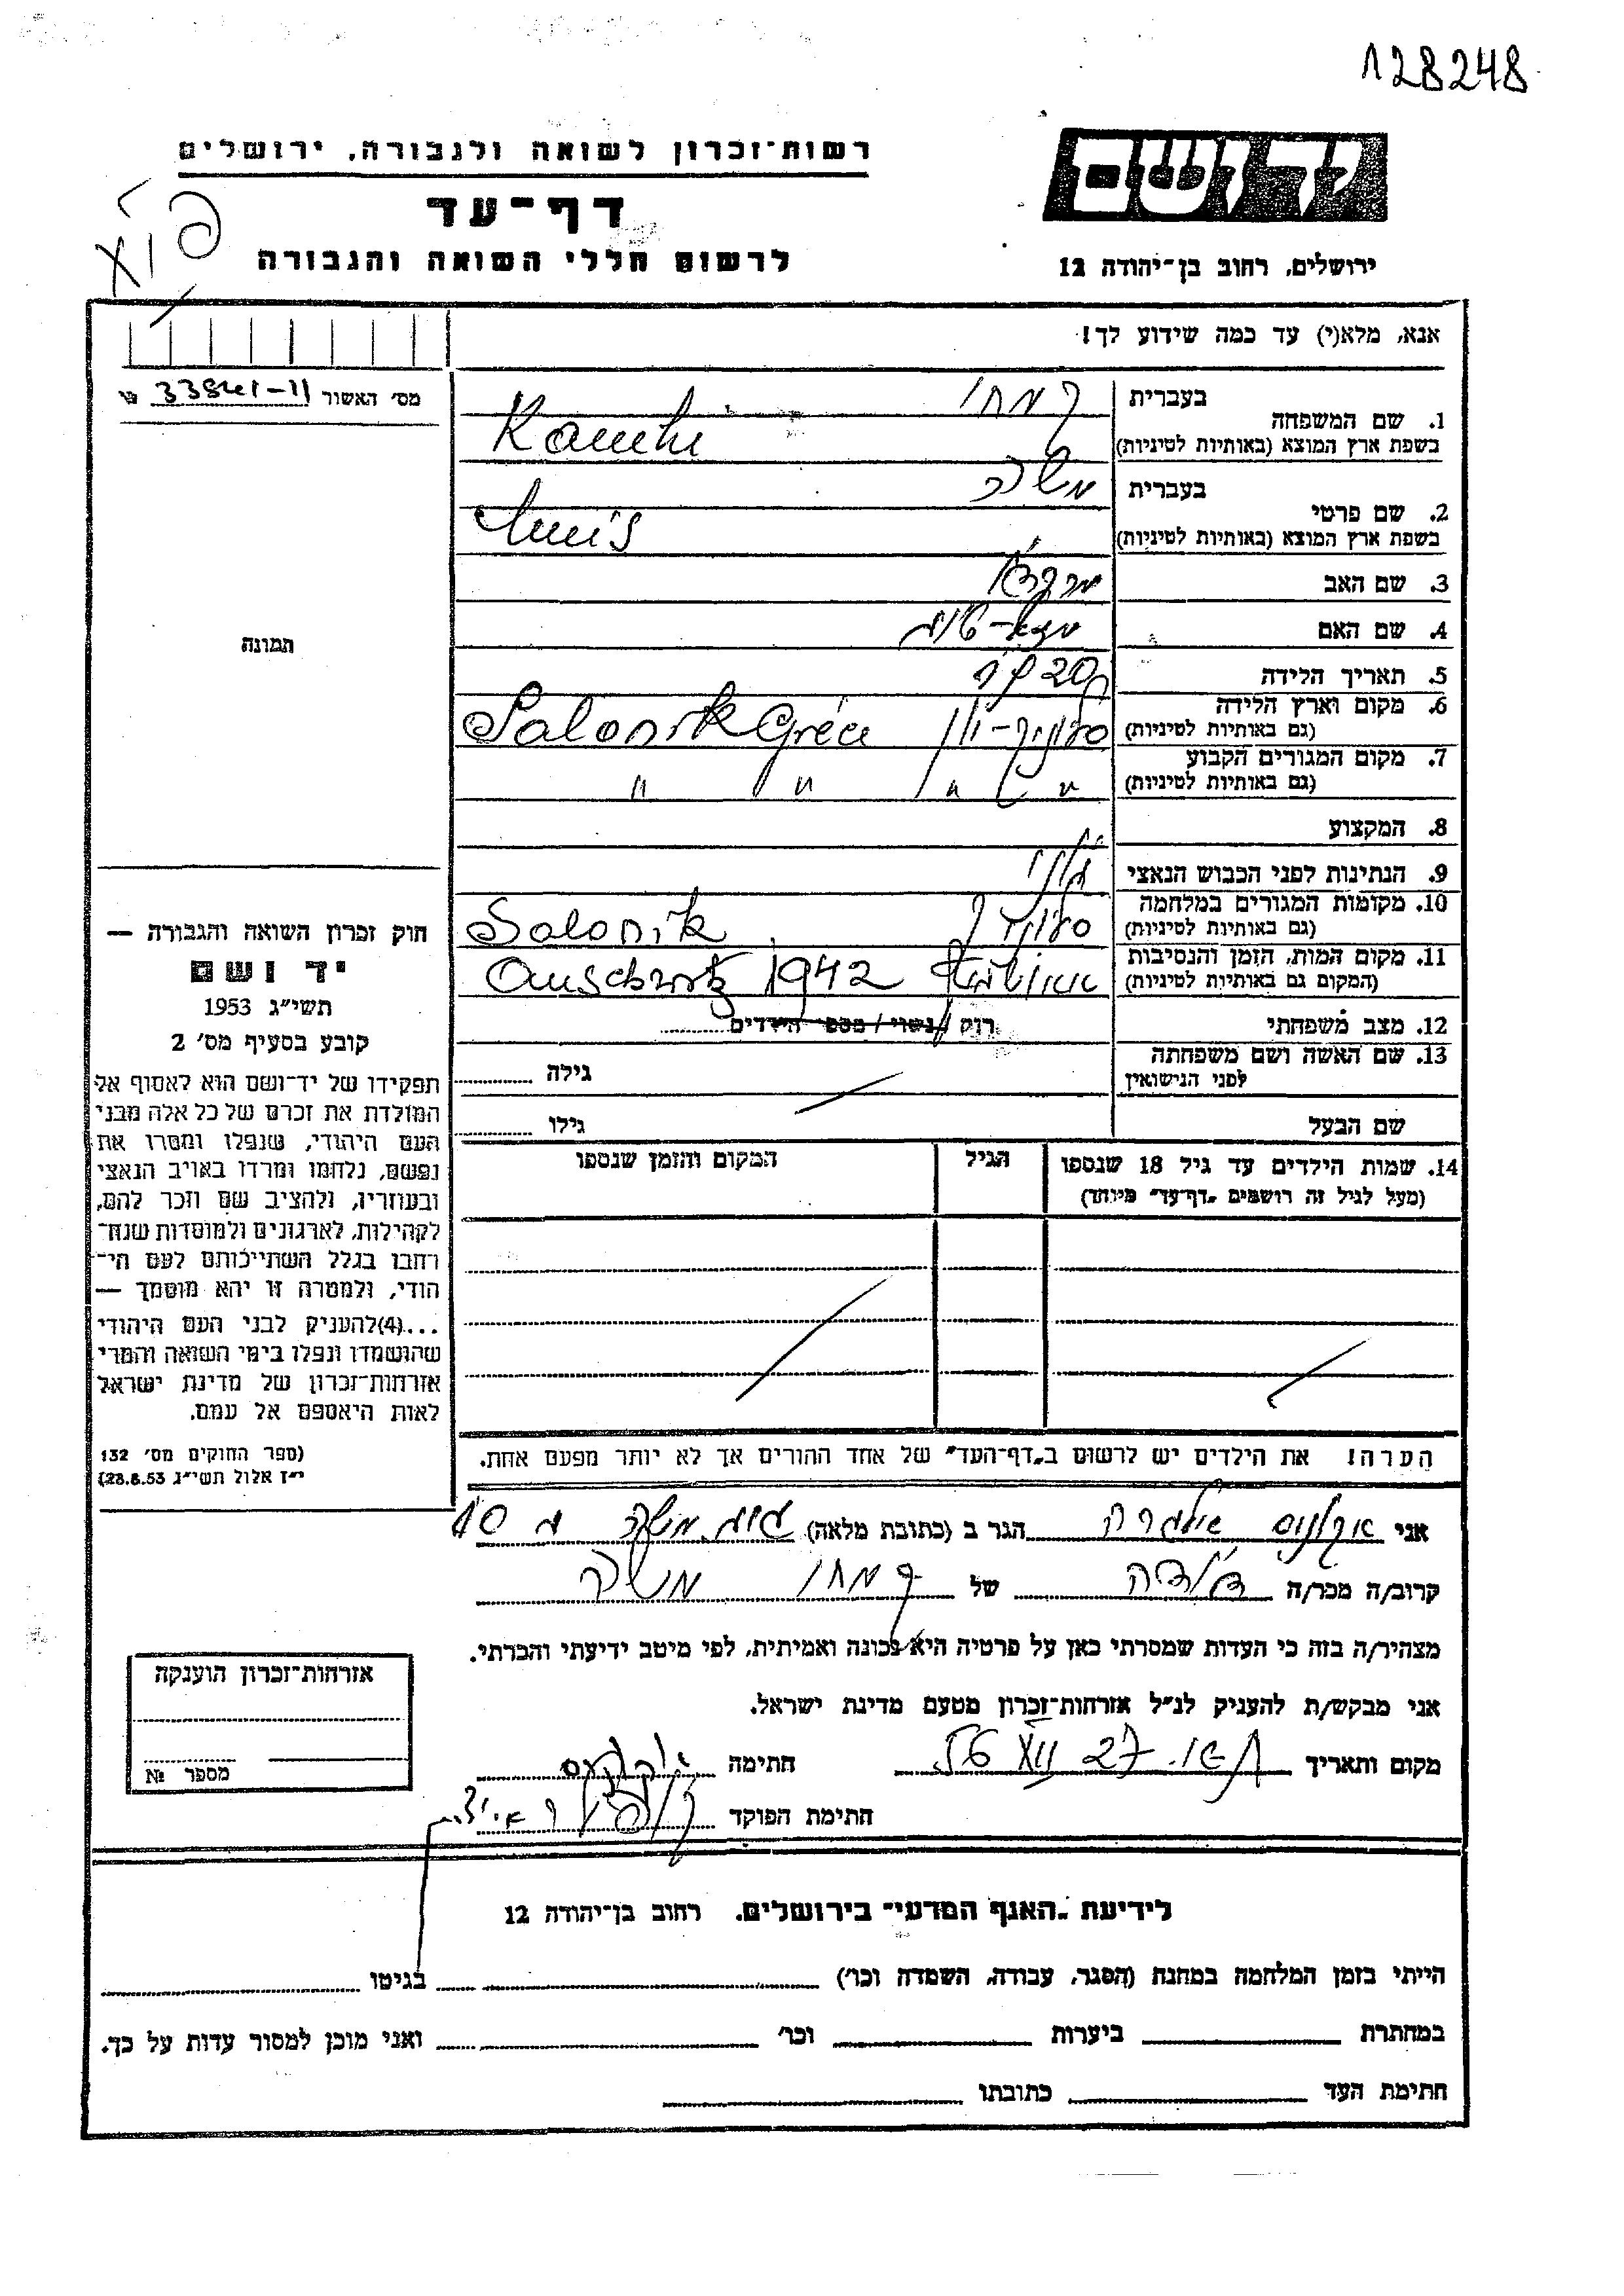 128248
רשות-זכרון לשואה ולגבורה, ירושלים
יד ושם
דף-עד
לרשום חללי השואה והגבורה
ירושלים, רחוב בן-יהודה 12
אנא, מלא(י) עד כמה שידוע לך!
מס' האשור 33841-11
תמונה
1. שם המשפחה בעברית קמחי
בשפת ארץ המוצא (באותיות לטיניות) Kamhi
2. שם פרטי בעברית משה
בשפת ארץ המוצא (באותיות לטיניות)
3. שם האב מרדכי
4. שם האם מזל-טוב
5. תאריך הלידה
6. מקום וארץ הלידה (גם באותיות לטיניות) סלוניקי-יון Salonik Grèce
7. מקום המגורים הקבוע (גם באותיות לטיניות) " " " "
8. המקצוע
9. הנתינות לפני הכבוש הנאצי יוני
10. מקומות המגורים במלחמה (גם באותיות לטיניות) סלוניקי Salonik
11. מקום המות, הזמן והנסיבות (המקום גם באותיות לטיניות) 1942
12. מצב משפחתי רוק / נשוי / מספר הילדים
13. שם האשה ושם משפחתה לפני הנישואין גילה
שם הבעל גילו
14. שמות הילדים עד גיל 18 שנספו הגיל המקום והזמן שנספו
(מעל לגיל זה רושמים "דף-עד" מיוחד)
הערה! את הילדים יש לרשום ב"דף-העד" של אחד ההורים אך לא יותר מפעם אחת.
חוק זכרון השואה והגבורה —
יד ושם
תשי"ג 1953
קובע בסעיף מס' 2
תפקידו של יד-ושם הוא לאסוף אל
המולדת את זכרם של כל אלה מבני
העם היהודי, שנפלו ומסרו את
נפשם, נלחמו ומרדו באויב הנאצי
ובעוזריו, ולהציב שם וזכר להם,
לקהילות, לארגונים ולמוסדות שנח-
רבו בגלל השתייכותם לעם הי-
הודי, ולמטרה זו יהא מוסמך —
...(4)להעניק לבני העם היהודי
שהושמדו ונפלו בימי השואה והמרי
אזרחות-זכרון של מדינת ישראל
לאות היאספם אל עמם.
(ספר החוקים מס' 132
י"ז אלול תשי"ג 28.8.53)
אני הגר ב (כתובת מלאה)
קרוב/ה מכר/ה של קמחי משה
מצהיר/ה בזה כי העדות שמסרתי כאן על פרטיה היא נכונה ואמיתית, לפי מיטב ידיעתי והכרתי.
אני מבקש/ת להעניק לנ"ל אזרחות-זכרון מטעם מדינת ישראל.
מקום ותאריך חתימה
חתימת הפוקד
אזרחות-זכרון הוענקה
מספר №
לידיעת "האגף המדעי" בירושלים, רחוב בן-יהודה 12
הייתי בזמן המלחמה במחנה (הסגר, עבודה, השמדה וכו') בגיטו
במחתרת ביערות וכו' ואני מוכן למסור עדות על כך.
חתימת העד כתובתו